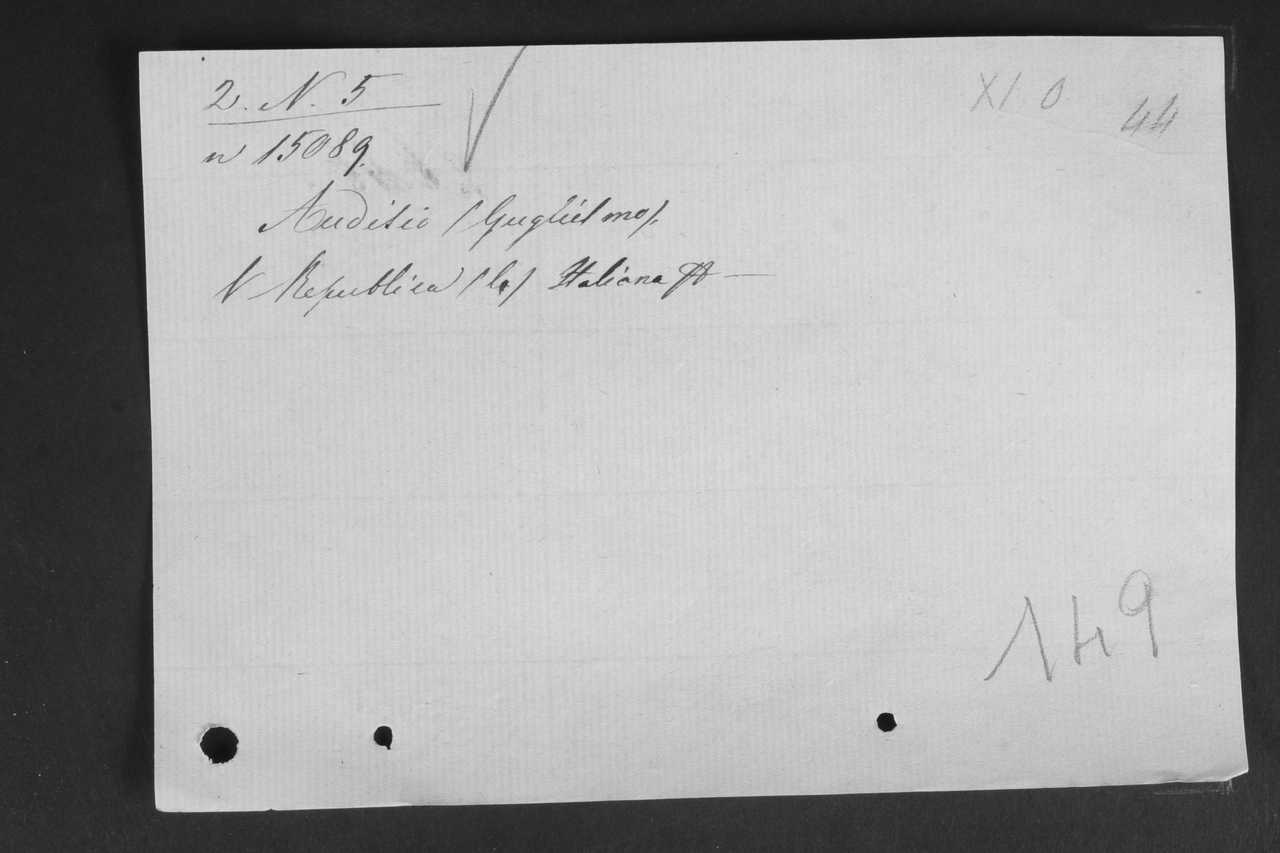 2. N. 5
XI 0
44
n 15089.
Audisio (Guglielmo).
V Republica (la) Italiana
149